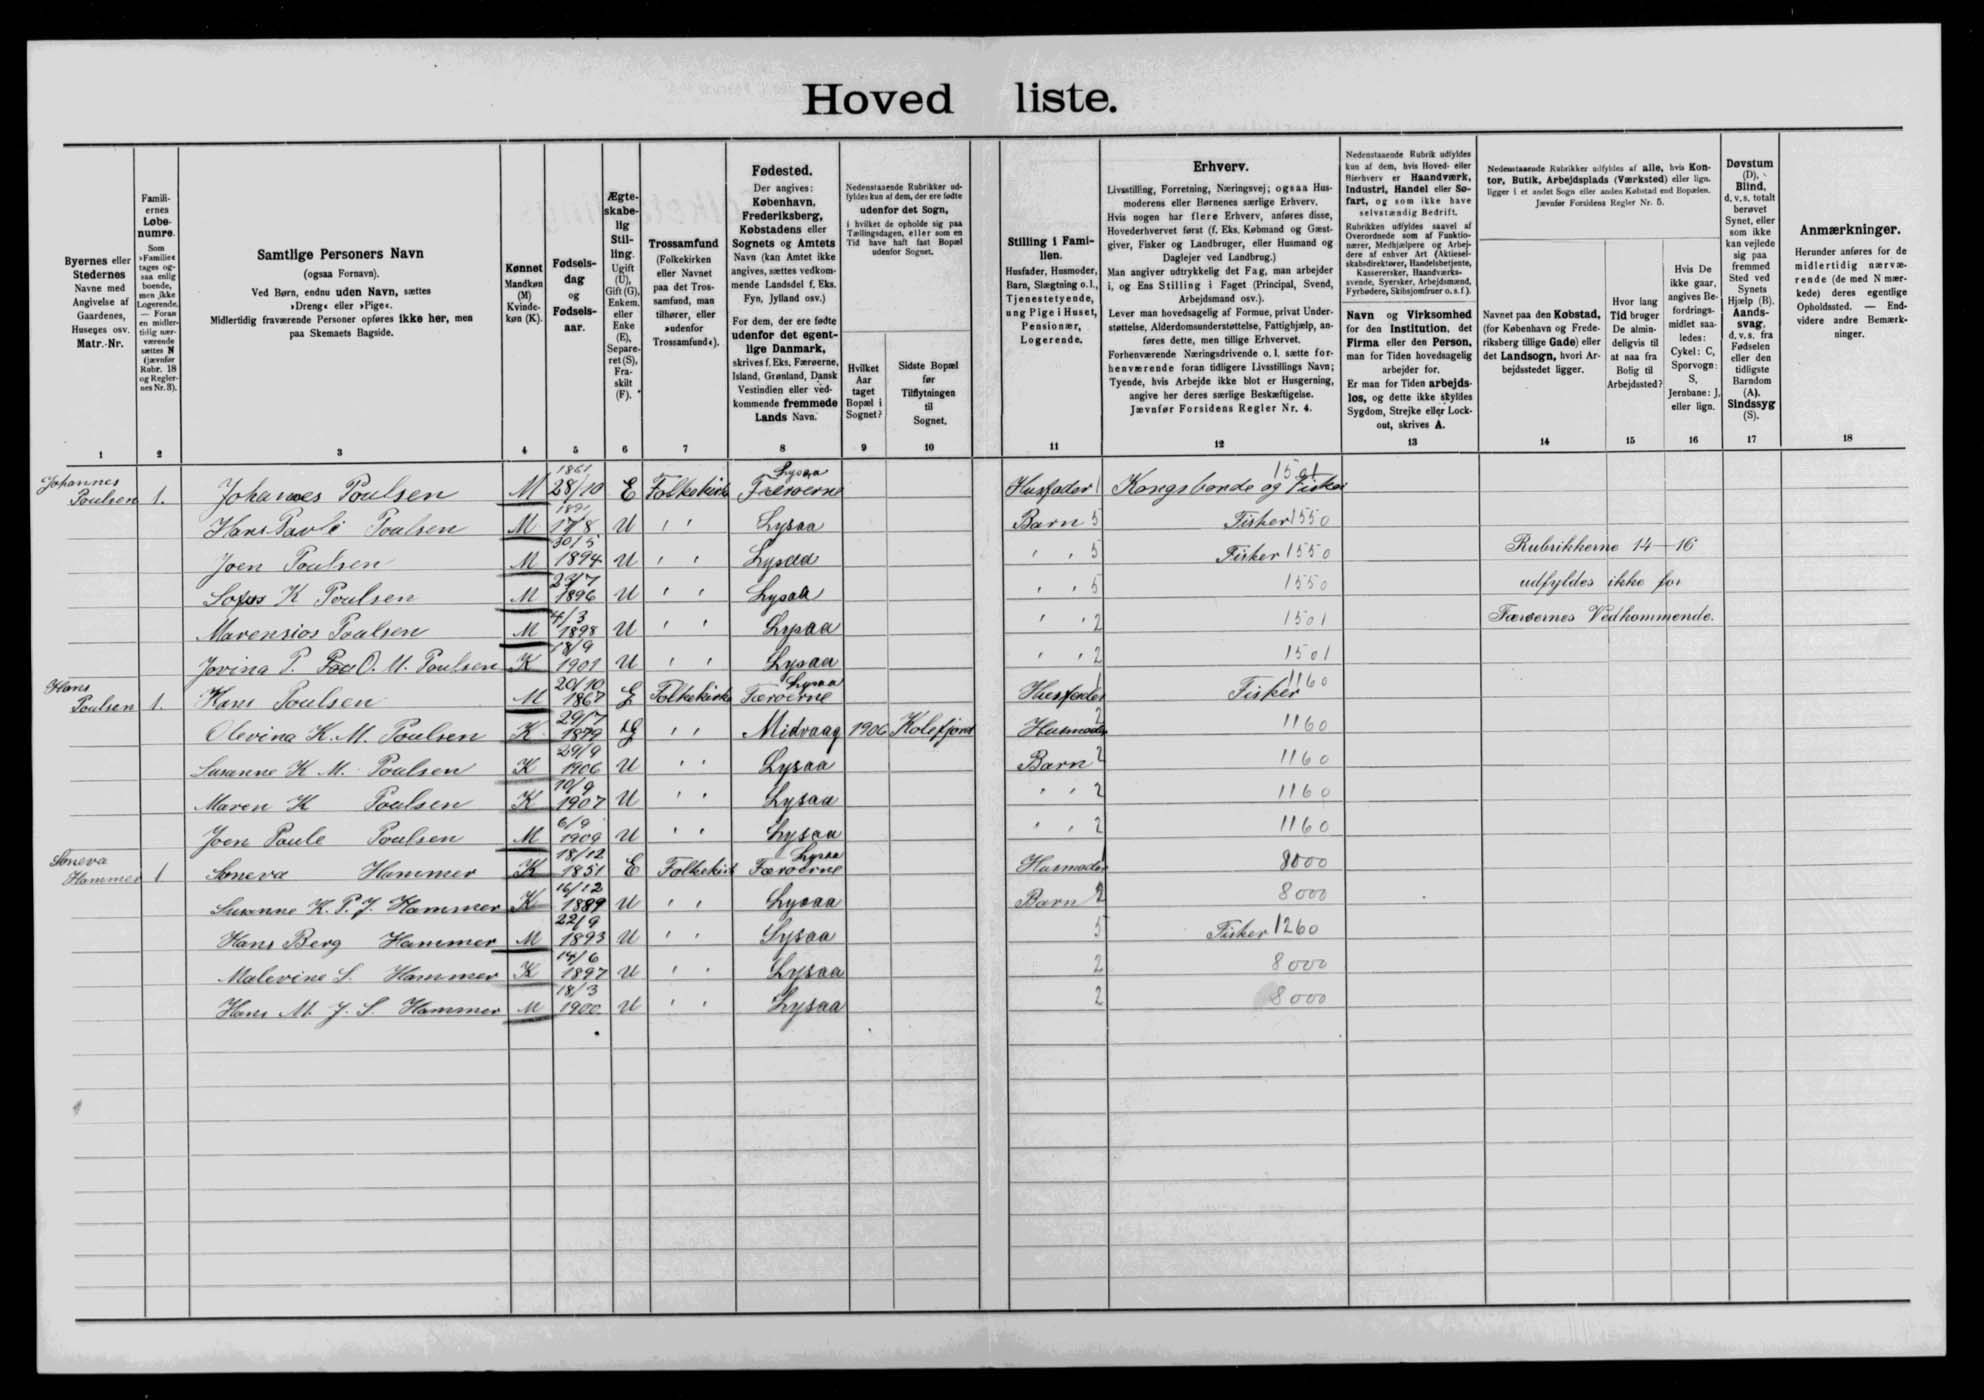 Hovedliste.
Byernes eller Stedernes Navne med Angivelse af Gaardenes, Huseges osv. Matr.-Nr.
Famili-ernes Løbe-numre. Som »Familie« tages og-saa enlig boende, men ikke Logerende. — Foran en midler-tidig nær-værende sættes N (jævnfør Rubr. 18 og Regler-nes Nr. 3).
Samtlige Personers Navn (ogsaa Fornavn). Ved Børn, endnu uden Navn, sættes »Dreng« eller »Pige«. Midlertidig fraværende Personer opføres ikke her, men paa Skemaets Bagside.
Kønnet Mandkøn (M) Kvinde-køn (K).
Fødsels-dag og Fødsels-aar.
Ægte-skabe-lig Stil-ling. Ugift (U), Gift (G), Enkem. eller Enke (E), Separe-ret (S), Fra-skilt (F).
Trossamfund (Folkekirken eller Navnet paa det Tros-samfund, man tilhører, eller »udenfor Trossamfund«).
Fødested. Der angives: København, Frederiksberg, Købstadens eller Sognets og Amtets Navn (kan Amtet ikke angives, sættes vedkom-mende Landsdel f. Eks. Fyn, Jylland osv.) For dem, der ere fødte udenfor det egent-lige Danmark, skrives f. Eks. Færøerne, Island, Grønland, Dansk Vestindien eller ved-kommende fremmede Lands Navn.
Nedenstaaende Rubrikker ud-fyldes kun af dem, der ere fødte udenfor det Sogn, i hvilket de opholde sig paa Tællingsdagen, eller som en Tid have haft fast Bopæl udenfor Sognet.
Hvilket Aar taget Bopæl i Sognet?
Sidste Bopæl før Tilflytningen til Sognet.
Stilling i Fami-lien. Husfader, Husmoder, Barn, Slægtning o. l., Tjenestetyende, ung Pige i Huset, Pensionær, Logerende.
Erhverv. Livsstilling, Forretning, Næringsvej; ogsaa Hus-moderens eller Børnenes særlige Erhverv. Hvis nogen har flere Erhverv, anføres disse, Hovederhvervet først (f. Eks. Købmand og Gæst-giver, Fisker og Landbruger, eller Husmand og Daglejer ved Landbrug.) Man angiver udtrykkelig det Fag, man arbejder i, og Ens Stilling i Faget (Principal, Svend, Arbejdsmand osv.). Lever man hovedsagelig af Formue, privat Under-støttelse, Alderdomsunderstøttelse, Fattighjælp, an-føres dette, men tillige Erhvervet. Forhenværende Næringsdrivende o. l. sætte for-henværende foran tidligere Livsstillings Navn; Tyende, hvis Arbejde ikke blot er Husgerning, angive her deres særlige Beskæftigelse. Jævnfør Forsidens Regler Nr. 4.
Nedenstaaende Rubrik udfyldes kun af dem, hvis Hoved- eller Bierhverv er Haandværk, Industri, Handel eller Sø-fart, og som ikke have selvstændig Bedrift. Rubrikken udfyldes saavel af Overordnede som af Funktio-nærer, Medhjælpere og Arbej-dere af enhver Art (Aktiesel-skabsdirektører, Handelsbetjente, Kasserersker, Haandværks-svende, Syersker, Arbejdsmænd, Fyrbødere, Skibsjomfruer o. s. f.).
Navn og Virksomhed for den Institution, det Firma eller den Person, man for Tiden hovedsagelig arbejder for. Er man for Tiden arbejds-løs, og dette ikke skyldes Sygdom, Strejke eller Lock-out, skrives A.
Nedenstaaende Rubrikker udfyldes af alle, hvis Kon-tor, Butik, Arbejdsplads (Værksted) eller lign. ligger i et andet Sogn eller anden Købstad end Bopælen. Jævnfør Forsidens Regler Nr. 5.
Navnet paa den Købstad, (for København og Frede-riksberg tillige Gade) eller det Landsogn, hvori Ar-bejdsstedet ligger.
Hvor lang Tid bruger De almin-deligvis til at naa fra Bolig til Arbejdssted?
Hvis De ikke gaar, angives Be-fordrings-midlet saa-ledes: Cykel: C, Sporvogn: S, Jernbane: J, eller lign.
Døvstum (D), Blind, d. v. s. totalt berøvet Synet, eller som ikke kan vejlede sig paa fremmed Sted ved Synets Hjælp (B). Aands-svag, d. v. s. fra Fødselen eller den tidligste Barndom (A). Sindssyg (S).
Anmærkninger. Herunder anføres for de midlertidig nærvæ-rende (de med N mær-kede) deres egentlige Opholdssted. — End-videre andre Bemærk-ninger.
1 2 3 4 5 6 7 8 9 10 11 12 13 14 15 16 17 18
Johannes Poulsen 1. Johannes Poulsen M 1861 28/10 E Folkekirk Lysaa Færøerne Husfader 1 Kongsbonde og Fisker 1501
Hans Pavli Poulsen M 1891 17/8 U " " Lysaa Barn 5 Fisker 1550
Joen Poulsen M 30/5 1894 U " " Lysaa " " 5 Fisker 1550 Rubrikkerne 14—16
Sofus K Poulsen M 23/7 1896 U " " Lysaa " " 5 1550 udfyldes ikke for
Marensios Poulsen M 4/3 1898 U " " Lysaa " " 2 1501 Færøernes Vedkommende.
Jovina P. O. M. Poulsen K 18/9 1901 U " " Lysaa " " 2 1501
Hans Poulsen 1. Hans Poulsen M 20/10 1867 G Folkekirke Lysaa Færøerne Husfader 1 Fisker 1160
Olevina K. M. Poulsen K 29/7 1879 G " " Midvaag 1906 Kolefjord Husmoder 2 1160
Susanne K M. Poulsen K 29/9 1906 U " " Lysaa Barn 2 1160
Maren K Poulsen K 10/9 1907 U " " Lysaa " " 2 1160
Joen Paule Poulsen M 6/9 1909 U " " Lysaa " " 2 1160
Soneva Hammer 1 Soneva Hammer K 18/12 1851 E Folkekirk Lysaa Færøerne Husmoder 1 8000
Susanne K. P. J. Hammer K 16/12 1889 U " " Lysaa Barn 2 8000
Hans Berg Hammer M 22/9 1893 U " " Lysaa 5 Fisker 1260
Malevine S. Hammer K 14/6 1897 U " " Lysaa 2 8000
Hans M. J. S. Hammer M 18/3 1900 U " " Lysaa 2 8000